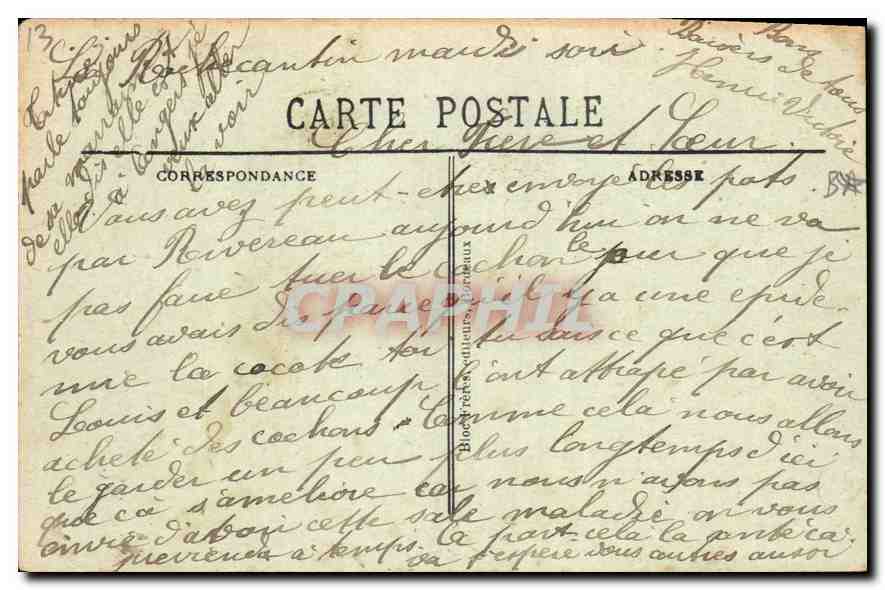 13
La Rochecantin mardi soir
CARTE POSTALE
Cher Frère et Sœur.
CORRESPONDANCE
ADRESSE
Vous avez peut-etre envoye les pots
par Rivereau aujourd'hui on ne va
pas faire tuer le cochon le jour que je
vous avais dis parcequ'il y a une epide-
mie la cocote toi tu sais ce que c'est
Louis et beaucoup l'ont attrapé par avoir
acheté des cochons. Comme cela nous allons
le garder un peu plus longtemps d'ici
que cà s'améliore car nous n'avons pas
envie d'avoir cette sale maladie on vous
previendra à temps. à part cela la santé ca
va j'espère vous autres aussi
parle toujours
de sa marraine
elle dis elle est
à Longers je
veux aller
la voir
Bons
Baisers de tous
Henri Victoire
Bloc Frères, éditeurs, Bordeaux
CPAPHIL